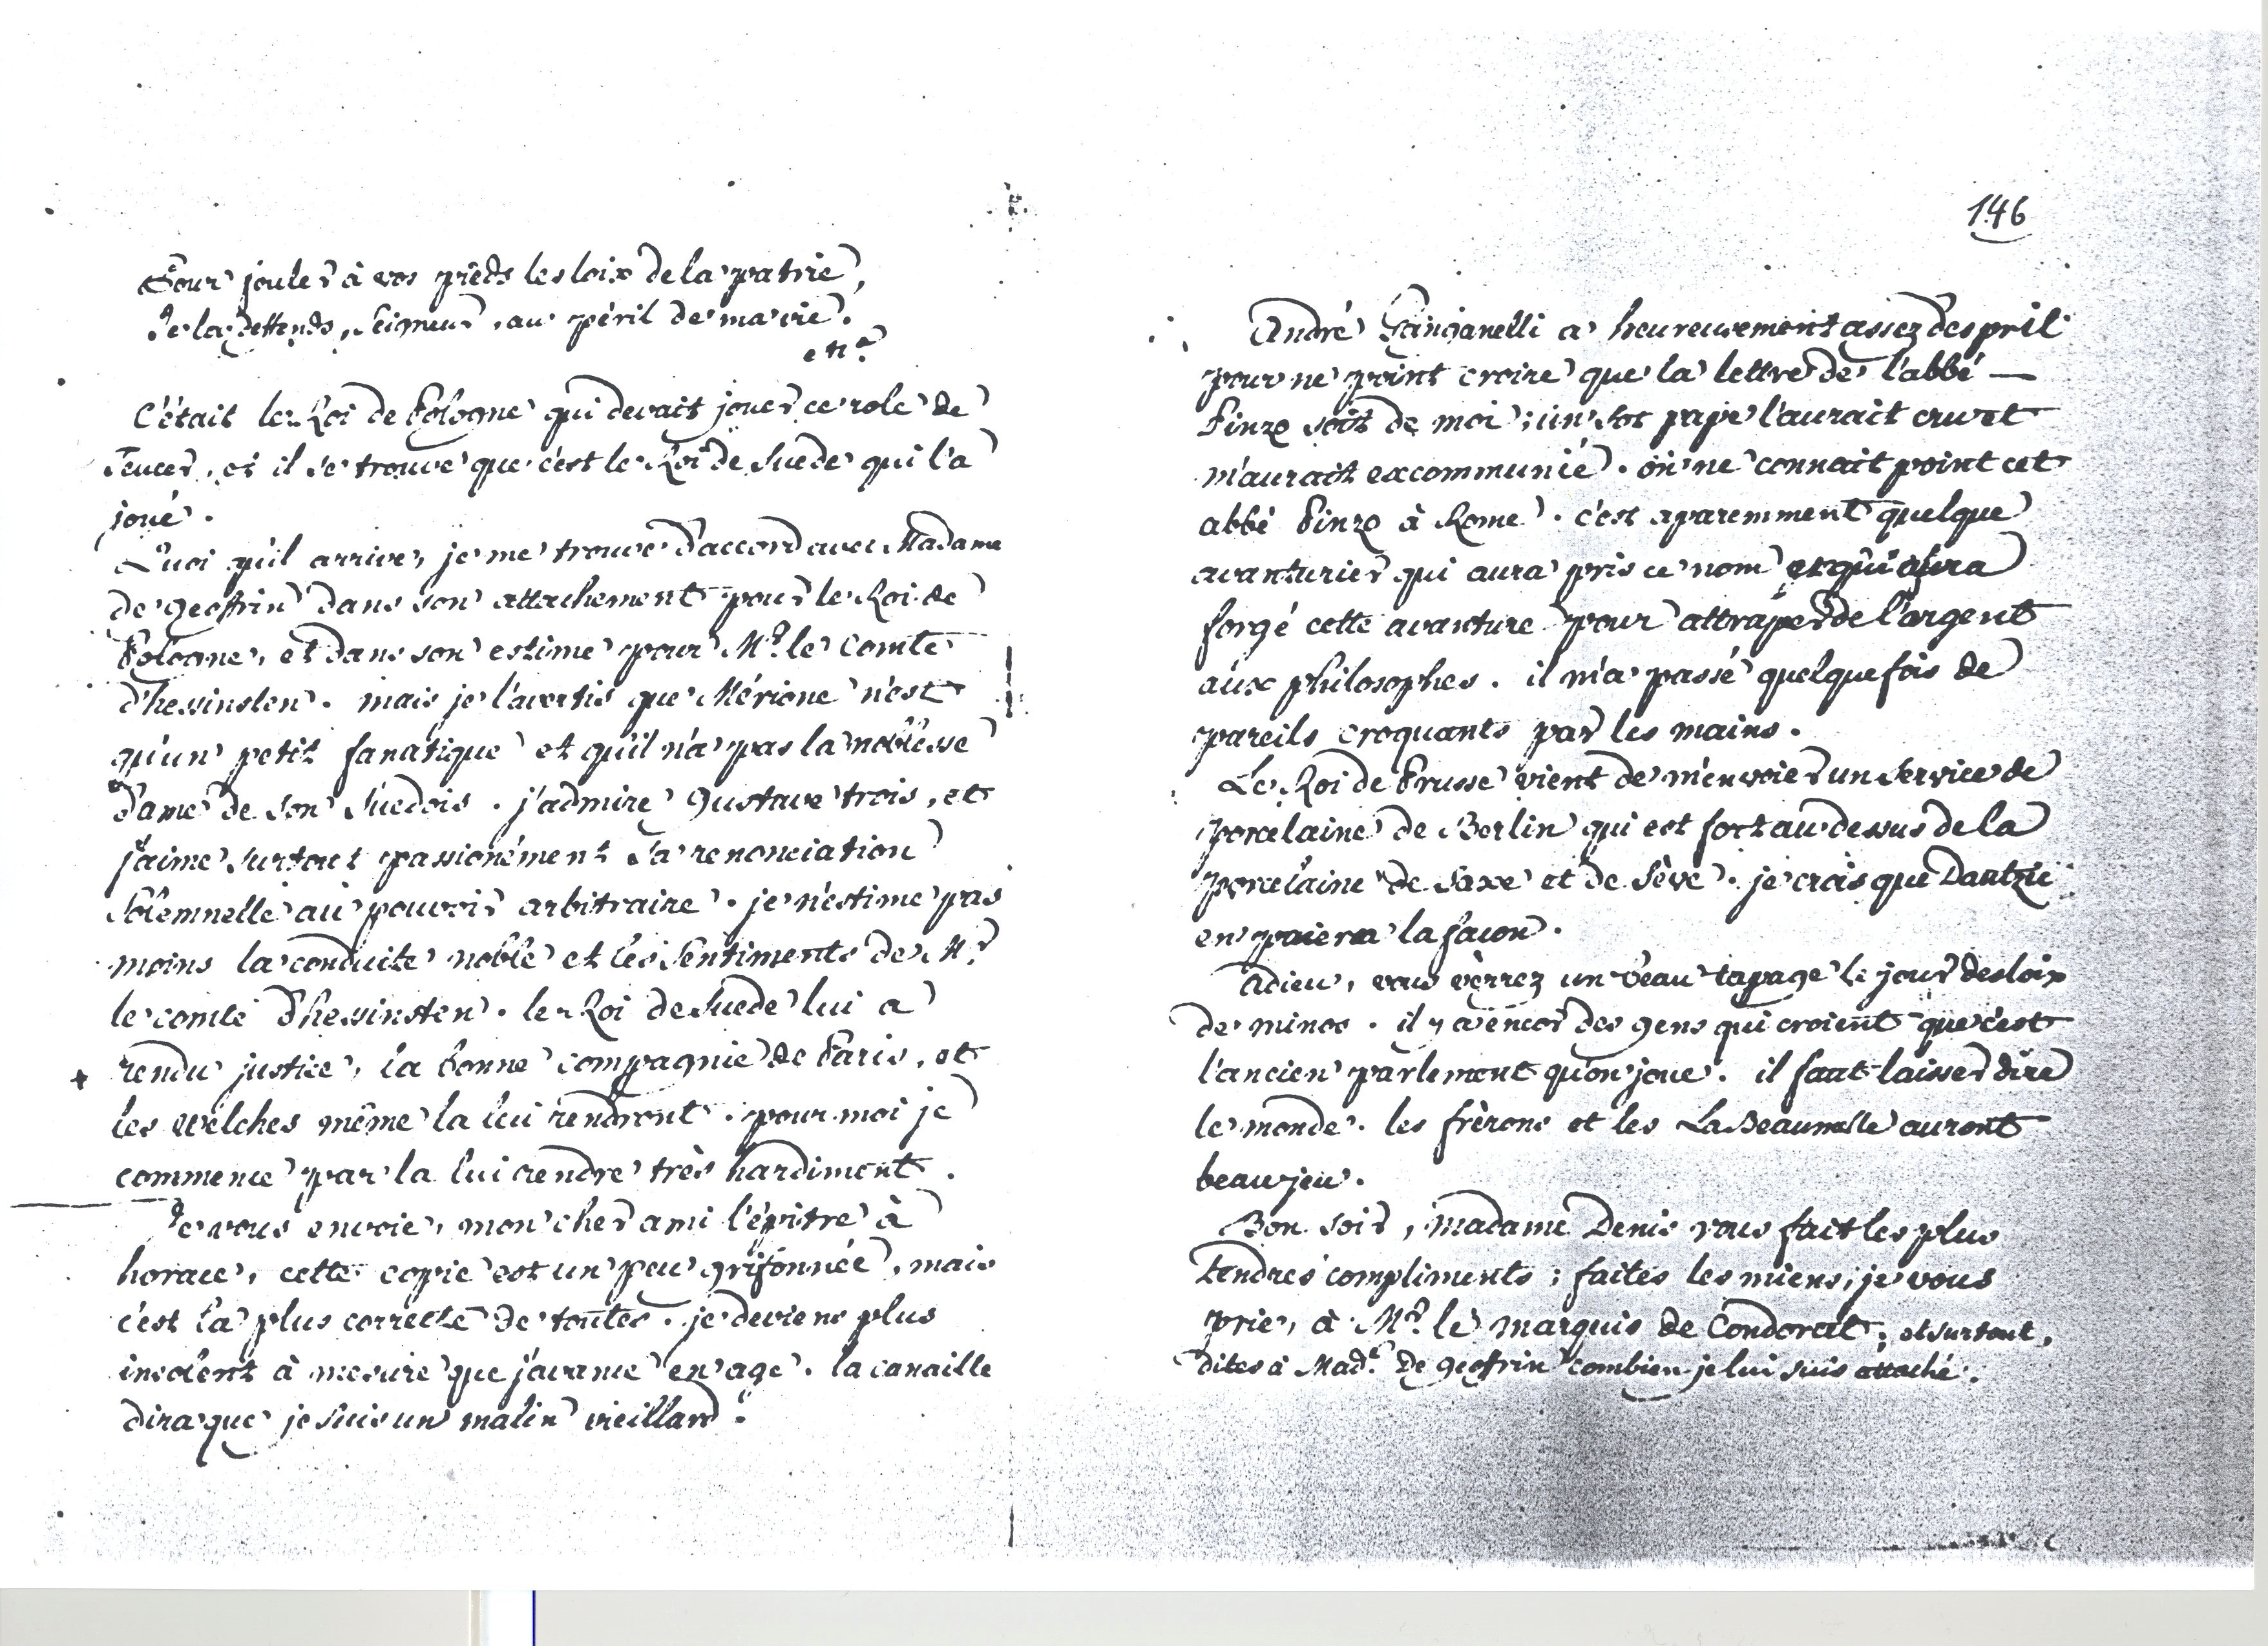 Pour fouler à vos pieds les loix de la patrie,
Je la deffends, Seigneur, au péril de ma vie.
etc.
C'était le Roi de Pologne qui devait jouer ce role de
Teucer, et il se trouve que c'est le Roi de Suede qui l'a
joué.
Quoi qu'il arrive, je me trouve d'accord avec Madame
de geoffrin dans son attachement pour le Roi de
Pologne, et dans son estime pour Mr. le Comte
d'hessinsten. mais je l'avertis que Mérione n'est
qu'un petit fanatique et qu'il n'a pas la noblesse
d'ame de son Suedois. j'admire gustave trois, et
j'aime surtout passionément sa renonciation
solemnelle au pouvoir arbitraire. je n'estime pas
moins la conduite noble et les Sentiments de Mr.
le comte d'hessinsten. le Roi de Suede lui a
rendu justice, la bonne compagnie de Paris, et
les welches même la lui rendront. pour moi je
commence par la lui rendre très hardiment.
Je vous envoie, mon cher ami l'épitre à
horace, cette copie est un peu grifonnée, mais
c'est la plus correcte de toutes. je deviens plus
insolent à mesure que j'avance en age. la canaille
dira que je suis un malin vieillard.
146
André Ganganelli a heureusement assez desprit
pour ne point croire que la lettre de l'abbé —
Pinzo soit de moi; un sot pape l'aurait cru et
m'aurait excommunié. on ne connait point cet
abbé Pinzo à Rome. c'est aparemment quelque
avanturier qui aura pris ce nom et qui aura
forgé cette avanture pour attraper de l'argent
aux philosophes. il m'a passé quelquefois de
pareils croquants par les mains.
Le Roi de Prusse vient de m'envoier un Service de
porcelaine de Berlin qui est fort au dessus de la
porcelaine de Saxe et de Sève. je crois que Dantzic
en paiera la façon.
Adieu, vous verrez un beau tapage le jour des loix
de minos. il y a encor des gens qui croient que c'est
l'ancien parlement qu'on joue. il faut laisser dire
le monde. les frèrons et les La Beaumelle auront
beau jeu.
Bon soir, Madame Denis vous fait les plus
tendres compliments; faites les miens, je vous
prie, à Mr. le marquis de Condorcet; et surtout,
dites à Made. De geoffrin combien je lui suis attaché.